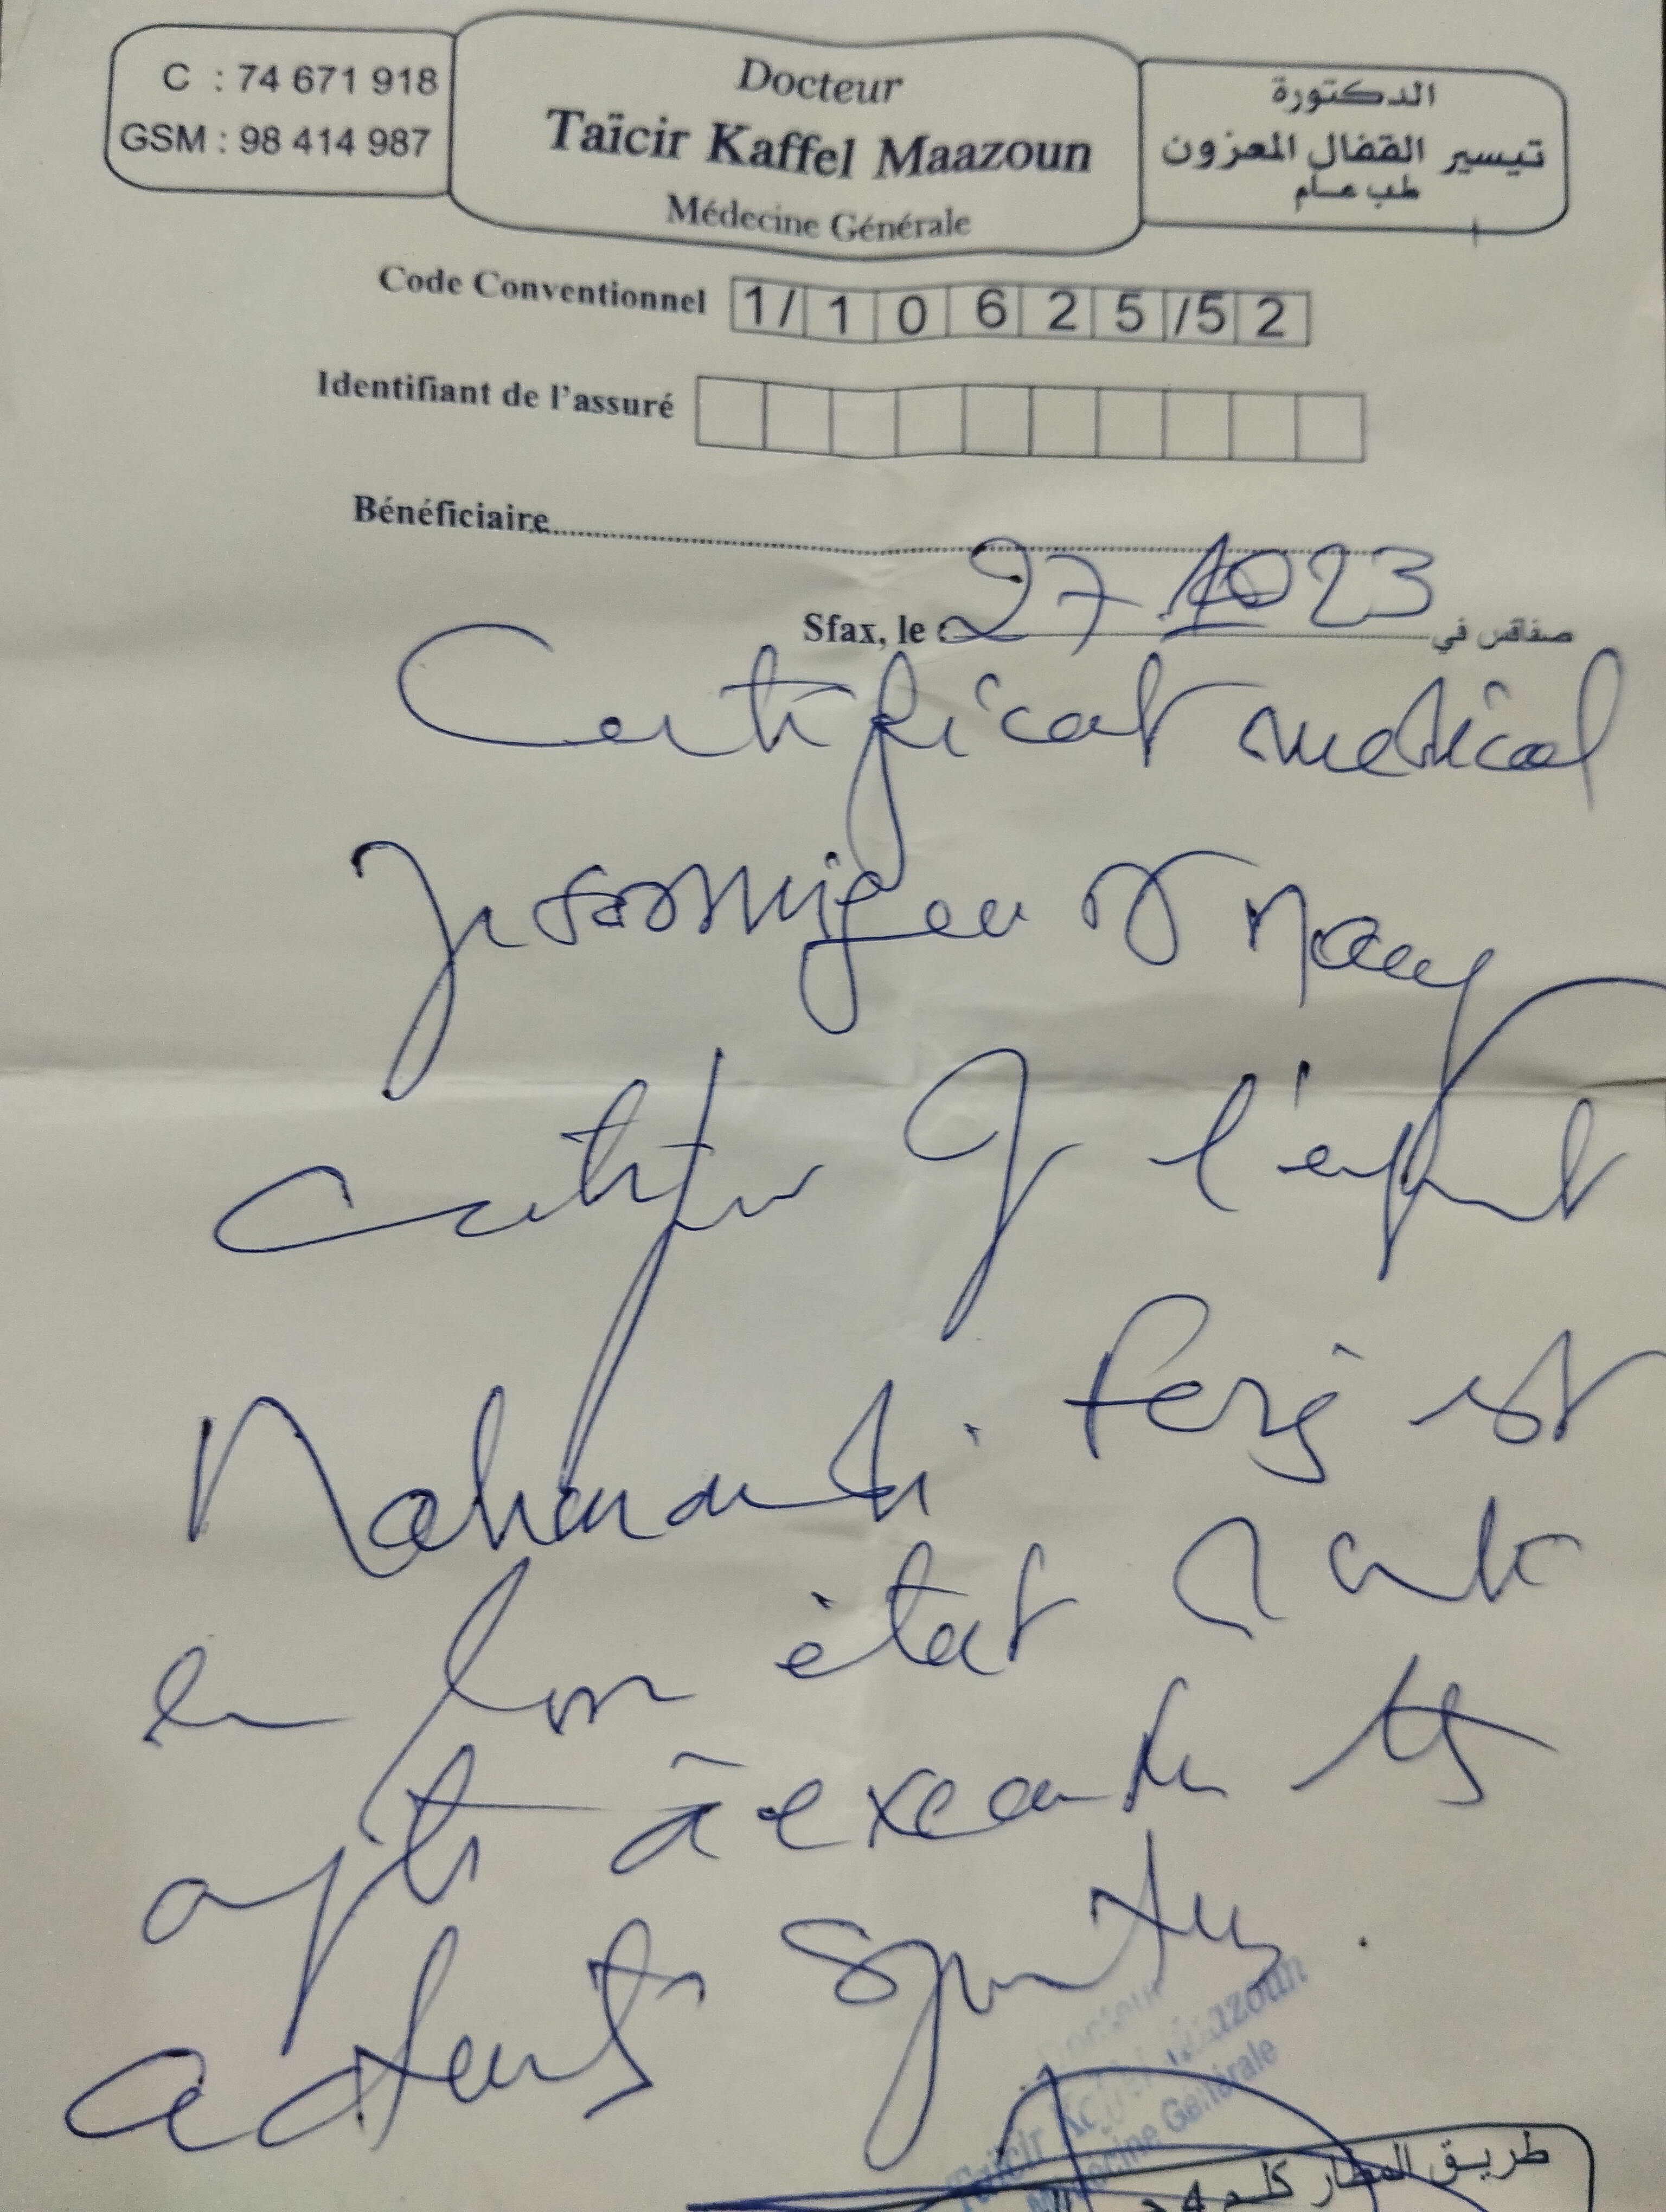 C : 74 671 918
GSM : 98 414 987
Docteur
Taïcir Kaffel Maazoun
Médecine Générale
الدكتورة
تيسير القفال المعزون
طب عام
Code Conventionnel 1/ 1 0 6 2 5 /5 2
Identifiant de l'assuré
Bénéficiaire
Sfax, le 27 10 23 صفاقس في
Certificat medical
Je soussigné
certifie q l'enfant
est
en bon état
apte à exécuter
sportives.
Docteur
Taïcir Kaffel Maazoun
Médecine Générale
طريق المطار كلم 4